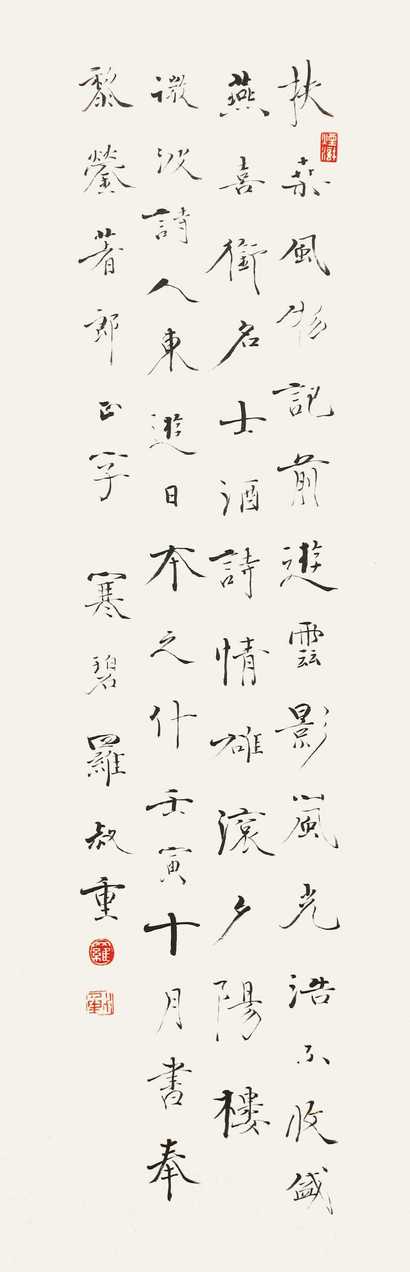 扶桑風物記前遊雲影嵐光浩不收盛
燕喜銜名士酒詩情雄滾夕陽樓
澂波詩人東遊日本之什壬寅十月書奉
黎瑩著郎正字 寒碧羅叔重
羅